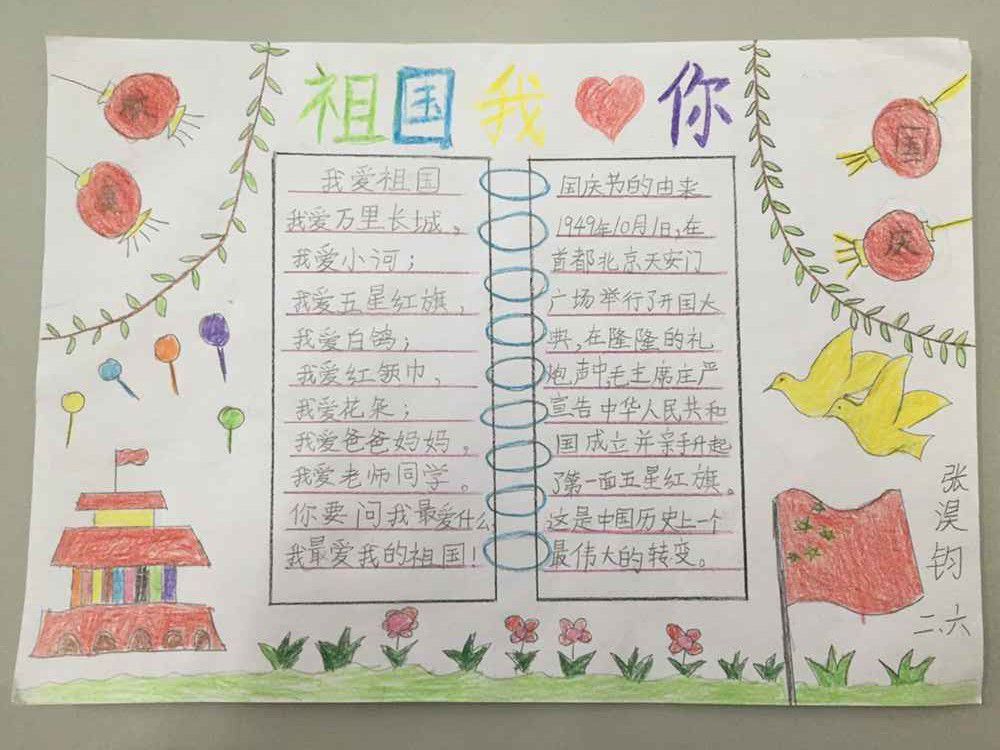 祖国我❤你
欢
庆
国
庆
我爱祖国
我爱万里长城，
我爱小河；
我爱五星红旗，
我爱白鸽；
我爱红领巾，
我爱花朵；
我爱爸爸妈妈，
我爱老师同学。
你要问我最爱什么
我最爱我的祖国！
国庆节的由来
1949年10月1日，在
首都北京天安门
广场举行了开国大
典，在隆隆的礼
炮声中毛主席庄严
宣告中华人民共和
国成立并亲手升起
了第一面五星红旗。
这是中国历史上一个
最伟大的转变。
张淏钧
二、六